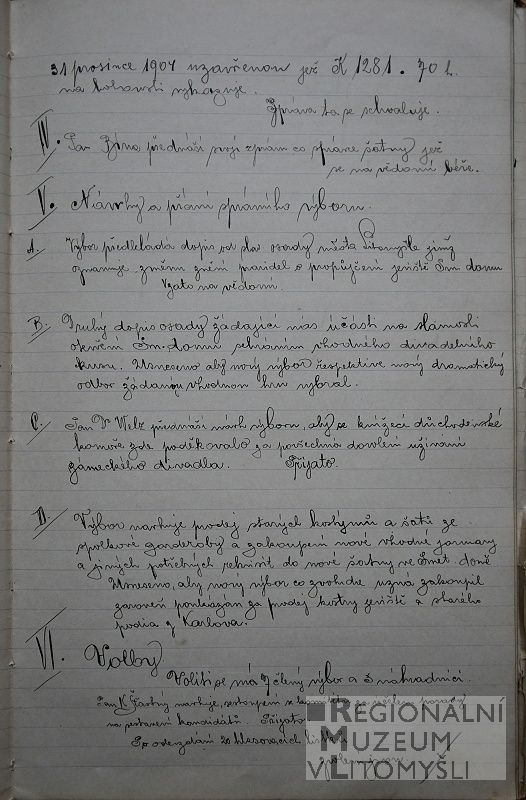 31 prosince 1904 uzavřenou jež K 1281.70 h.
na hotovosti vykazuje.
Zpráva ta se schvaluje.
IV. Pan přednáší svoji zprávu co správce šatny jež
se na vědomí béře.
V. Návrhy a přání správního výboru.
A. Výbor předkládá dopis od slav. osady města Litomyšle jímž
oznamuje změnu znění pravidel o propůjčení jeviště Sm. domu
Vzato na vědomí.
B. Druhý dopis osady žádající nás účasti na slavnosti
otevření Sm. domu sehráním vhodného divadelního
kusu. Usneseno aby nový výbor respektive nový dramatický
odbor žádanou vhodnou hru vybral.
C. Pan Dr Welz přednáší návrh výboru, aby se knížecí důchodenské
komoře zde poděkovalo za povšechné dovolení užívání
zámeckého divadla. Přijato.
D. Výbor navrhuje prodej starých kostýmů a šatů ze
spolkové garderoby a zakoupení nové vhodné
a jiných potřebných rekvisit do nové šatny ve Smet. domě
Usneseno, aby nový výbor co vhodné uzná zakoupil
zároveň poukázán za prodej kostry jeviště a starého
podia z Karlova.
VI. Volby
Voliti se má 7 členný výbor a 3 náhradníci.
Pan K. Šťastný navrhuje, sestoupení se
na sestavení kandidátů. Přijato
Po odevzdání 20 hlasovacích lístků
REGIONALNÍ
MUZEUM
V LITOMYŠLI